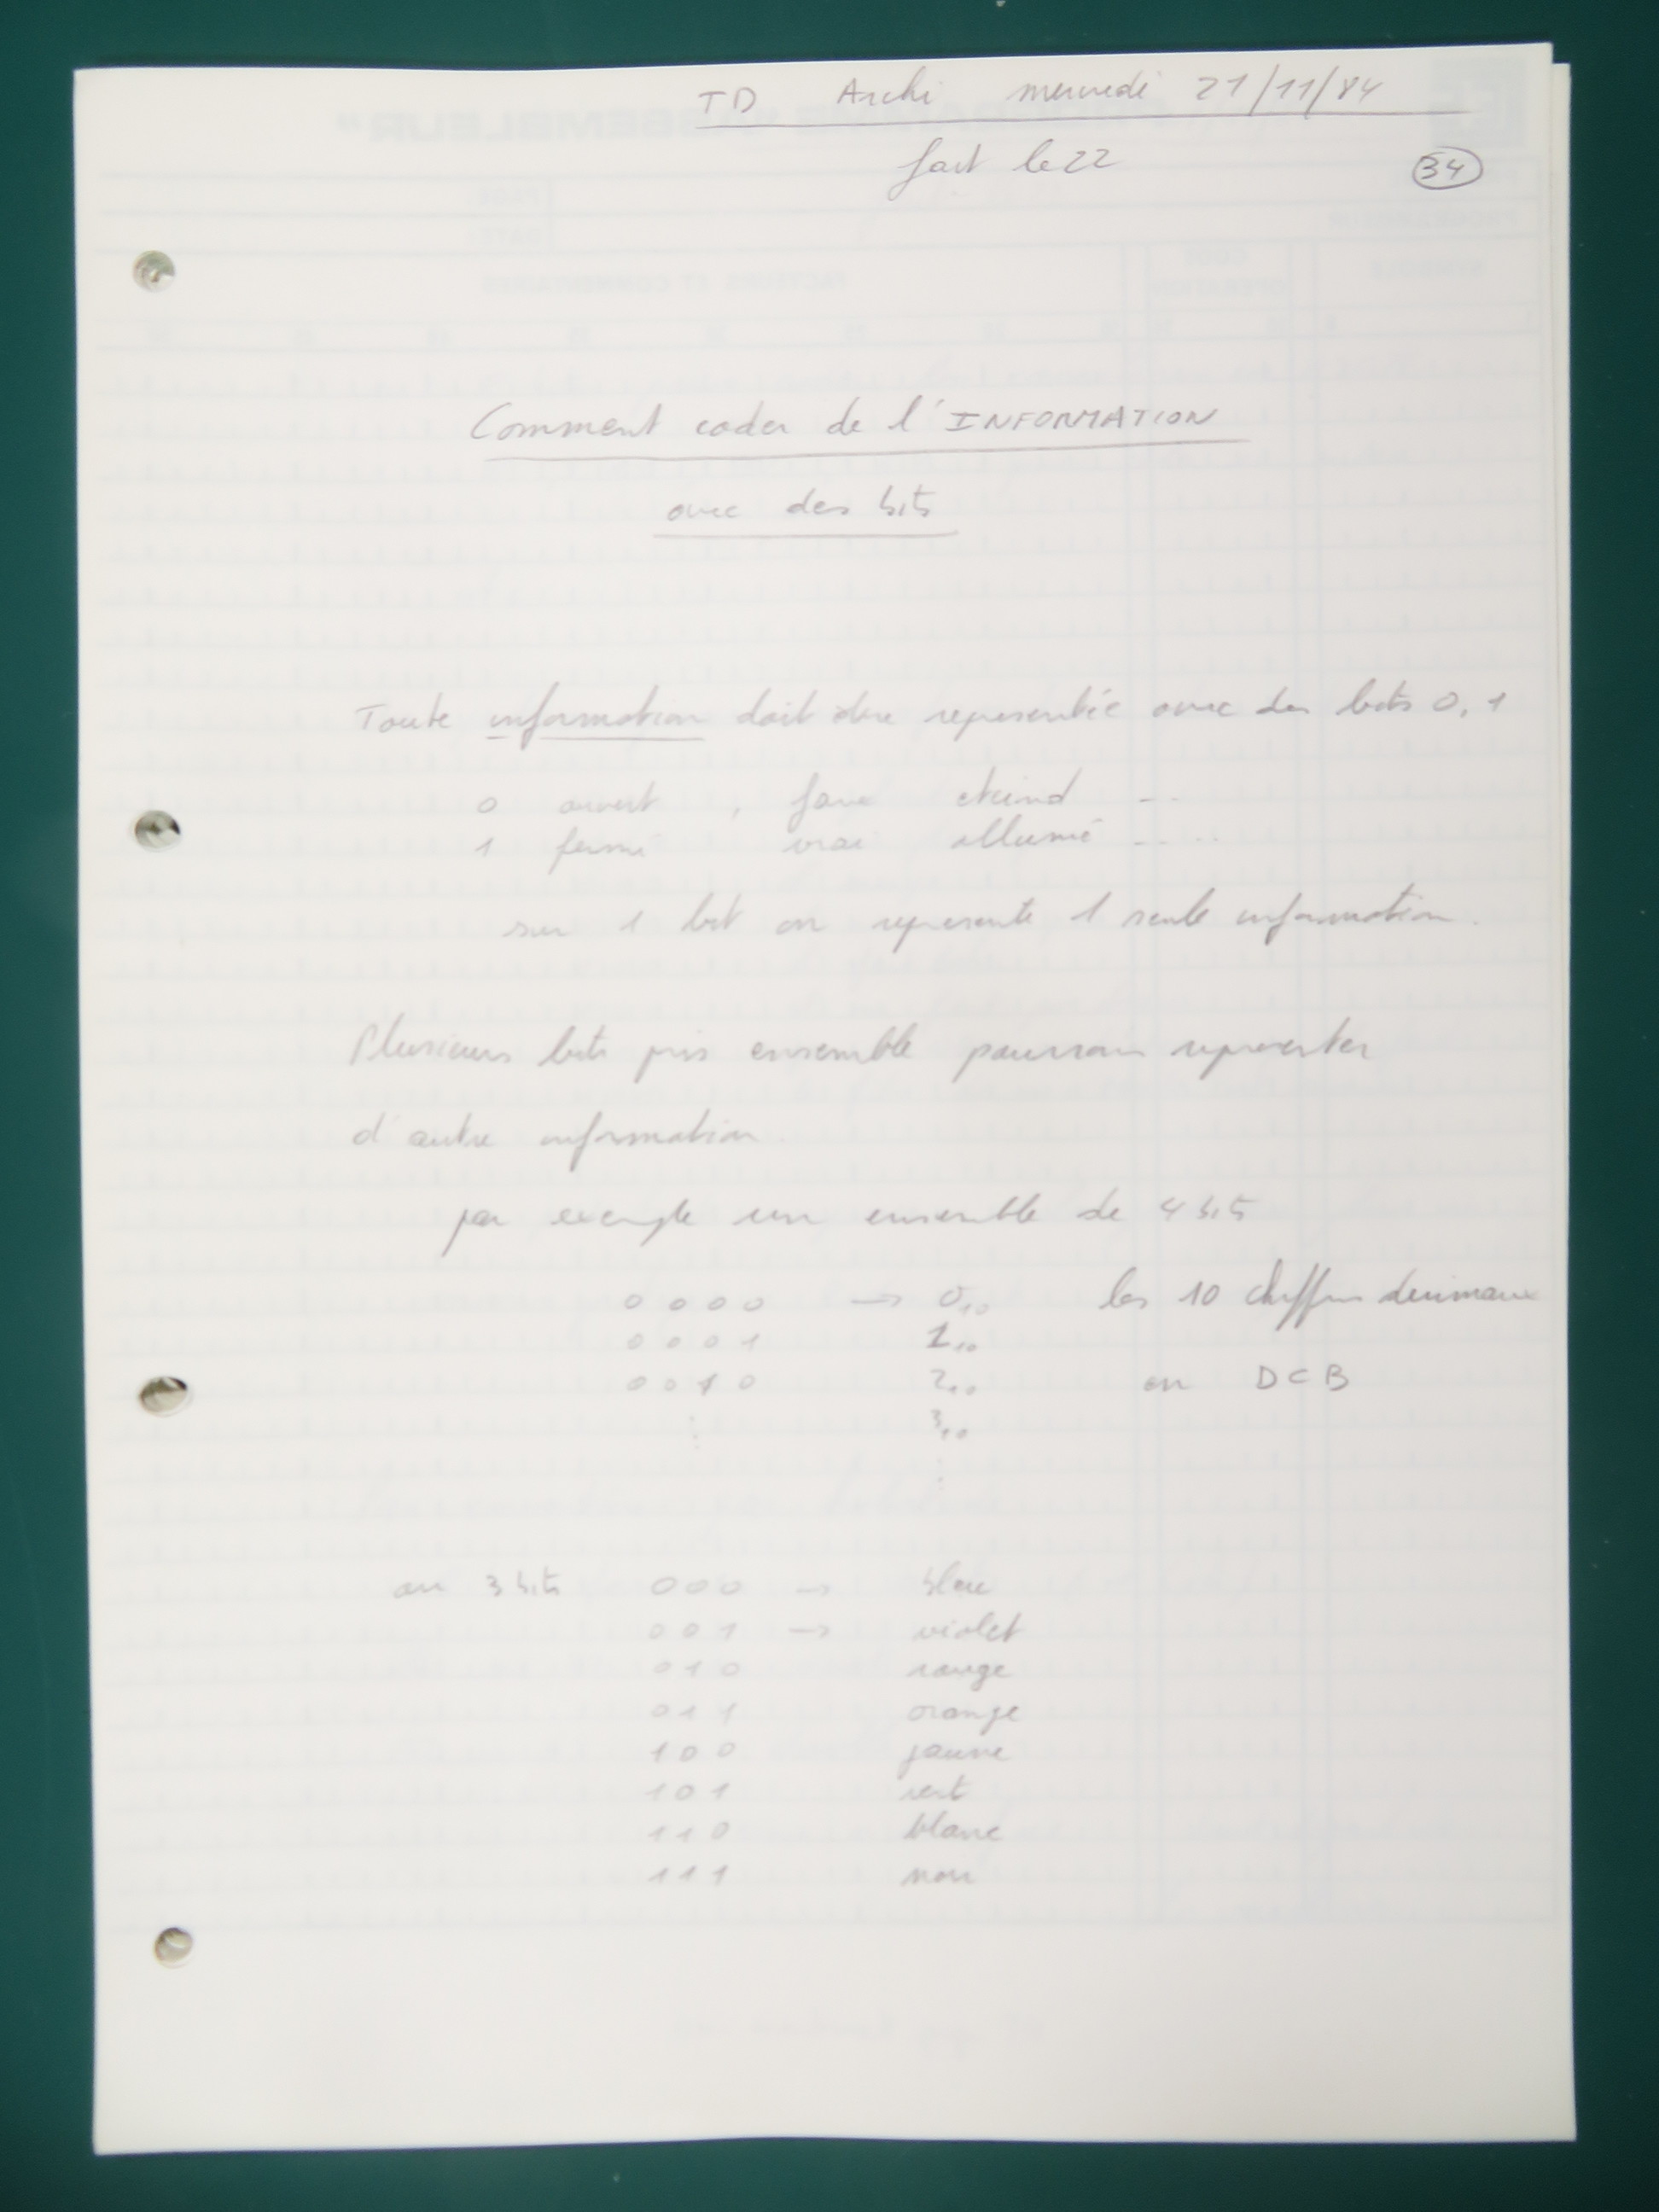 TD Archi mercredi 21/11/84
fait le 22
34
Comment coder de l'INFORMATION
avec des bits
Toute information doit être representée avec des bits 0, 1
0 ouvert , faux eteind - -
1 fermé vrai allumé - - - - -
sur 1 bit on represente 1 seule information.
Plusieurs bits pris ensemble pourront representer
d'autre information.
par exemple un ensemble de 4 bits
0 0 0 0 → 0₁₀ les 10 chiffres decimaux
0 0 0 1 1₁₀
0 0 1 0 2₁₀ en DCB
3₁₀
sur 3 bits 0 0 0 → bleu
0 0 1 → violet
0 1 0 rouge
0 1 1 orange
1 0 0 jaune
1 0 1 vert
1 1 0 blanc
1 1 1 noir